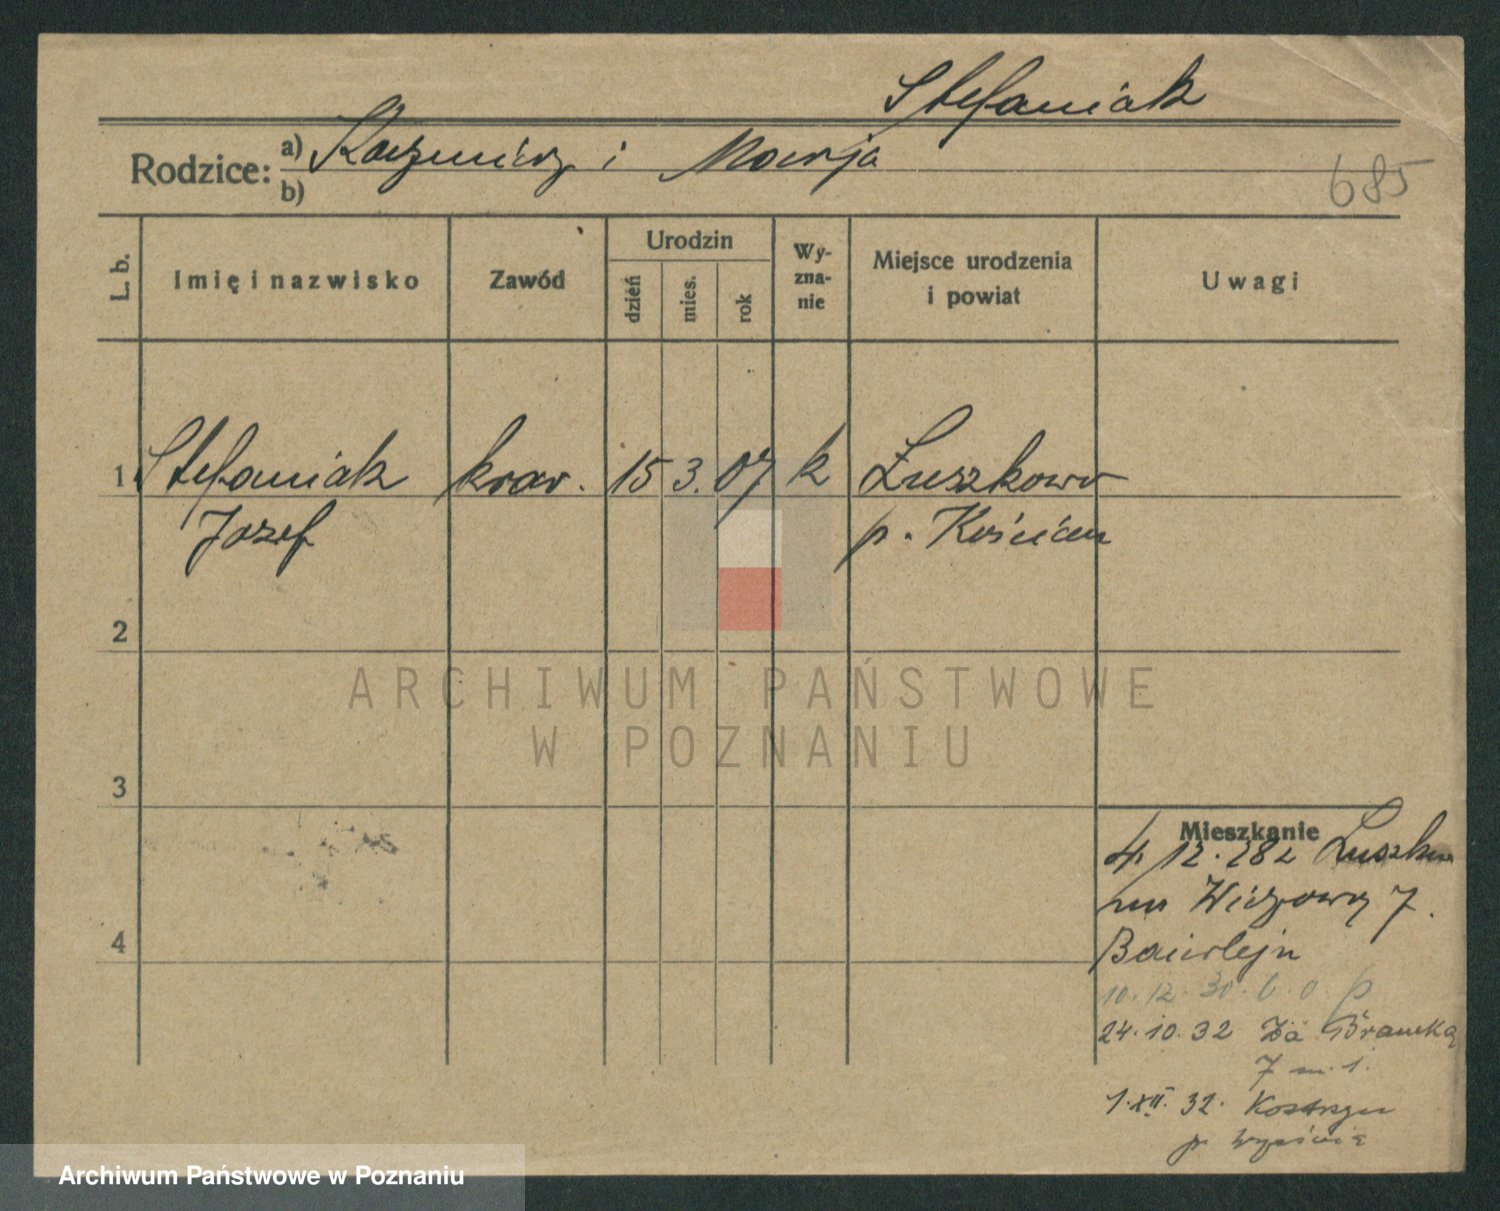 Stefaniak
Rodzice: a) Kazmierz i Marja
b)
685
L. b.
Imię i nazwisko
Zawód
Urodzin
dzień
mies.
rok
Wy-
zna-
nie
Miejsce urodzenia
i powiat
Uwagi
1 Stefaniak kraw. 15 3. 07 k Łuszkowo
Józef p. Kościan
2
ARCHIWUM PAŃSTWOWE
W POZNANIU
3
Mieszkanie
4. 12. 28 z
na 7.
Baierlejn
4
10. 12. 30. b. o. p
24. 10. 32 Za Bramką
7 m. 1.
1. XII. 32. Kostrzyn
p.
Archiwum Państwowe w Poznaniu